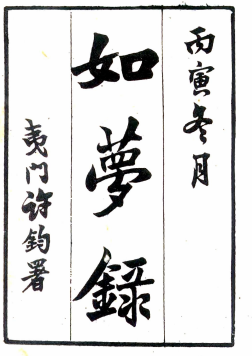 丙寅冬月
如夢録
夷門許鈞署